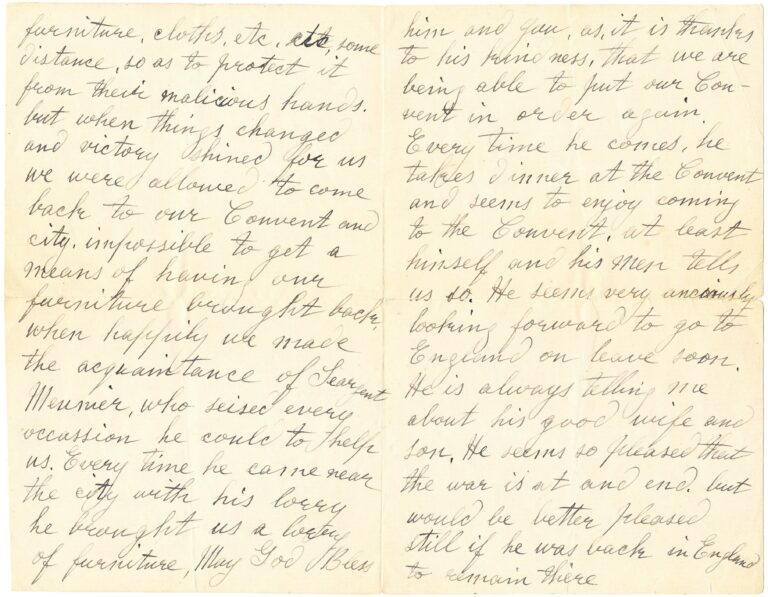 furniture, cloths, etc, etc, some
distance, so as to protect it
from their malicious hands.
but when things changed
and victory shined for us
we were allowed to come
back to our Convent and
city. impossible to get a
means of havin our
furniture brought back,
when happily we made
the acquaintance of Seargent
Meunier, who seised every
occassion he could to help
us. Every time he came near
the city with his lorry
he brought us a lorry
of furniture, May God Bless
him and you, as, it is thanks
to his kindness, that we are
being able to put our Con-
vent in order again.
Every time he comes, he
takes dinner at the Convent
and seems to enjoy coming
to the Convent, at least
himself and his men tells
us so. He seems very anciously
looking forward to go to
England on leave soon.
He is always telling me
about his good wife and
son. He seems so pleased that
the war is at and end. but
would be better pleased
still if he was back in England
to remain there